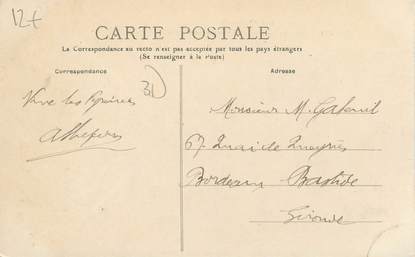 12+
CARTE POSTALE
La Correspondance au recto n'est pas acceptée par tous les pays étrangers
(Se renseigner à la Poste)
Correspondance
Adresse
31
Vive les Pyrénées
Monsieur M.
67 Quai de Queyries
Bordeaux Bastide
Gironde